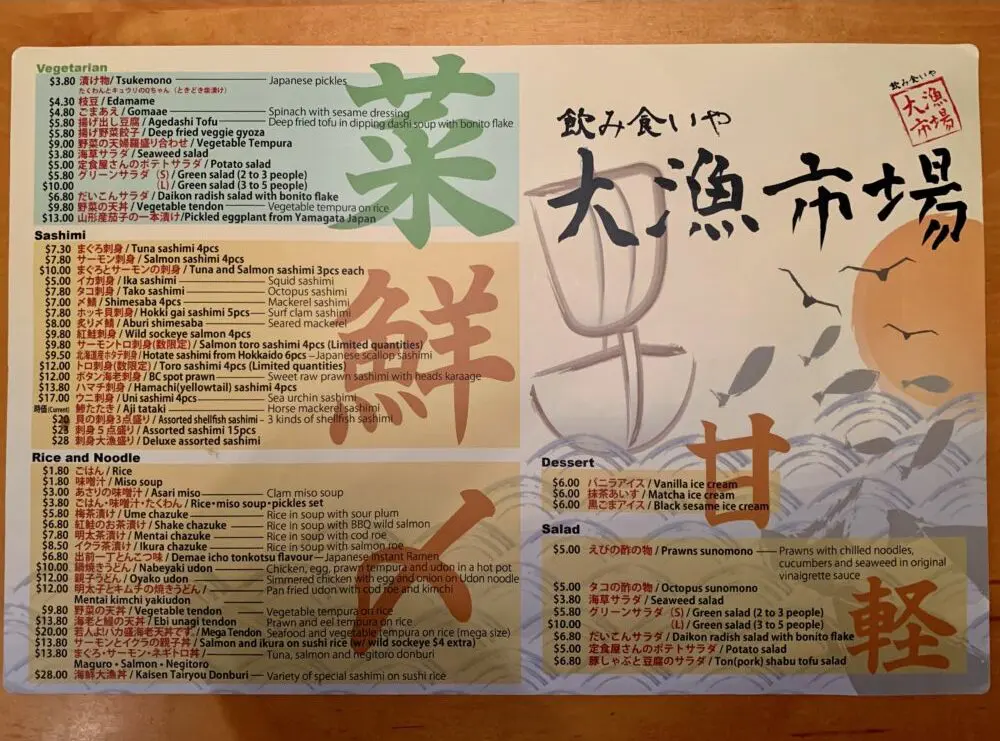 Vegetarian
$3.80 漬け物/Tsukemono Japanese pickles
たくわんとキュウリのQちゃん（ときどき柴漬け）
$4.30 枝豆/Edamame
$4.80 ごまあえ/Gomaae Spinach with sesame dressing
$5.80 揚げ出し豆腐/Agedashi Tofu Deep fried tofu in dipping dashi soup with bonito flake
$5.80 揚げ野菜餃子/Deep fried veggie gyoza
$9.00 野菜の天婦羅盛り合わせ/Vegetable Tempura
$3.80 海草サラダ/Seaweed salad
$5.00 定食屋さんのポテトサラダ/Potato salad
$5.80 グリーンサラダ（S）/Green salad (2 to 3 people)
$10.00 （L）/Green salad (3 to 5 people)
$6.80 だいこんサラダ/Daikon radish salad with bonito flake
$9.80 野菜の天丼/Vegetable tendon Vegetable tempura on rice
$13.00 山形産茄子の一本漬け/Pickled eggplant from Yamagata Japan
菜
Sashimi
$7.30 まぐろ刺身/Tuna sashimi 4pcs
$7.80 サーモン刺身/Salmon sashimi 4pcs
$10.00 まぐろとサーモンの刺身/Tuna and Salmon sashimi 3pcs each
$5.00 イカ刺身/Ika sashimi Squid sashimi
$7.80 タコ刺身/Tako sashimi Octopus sashimi
$7.00 〆鯖/Shimesaba 4pcs Mackerel sashimi
$7.80 ホッキ貝刺身/Hokki gai sashimi 5pcs Surf clam sashimi
$8.00 炙り〆鯖/Aburi shimesaba Seared mackerel
$9.80 紅鮭刺身/Wild sockeye salmon 4pcs
$9.80 サーモントロ刺身(数限定)/Salmon toro sashimi 4pcs (Limited quantities)
$9.50 北海道産ホタテ刺身/Hotate sashimi from Hokkaido 6pcs Japanese scallop sashimi
$12.00 トロ刺身(数限定)/Toro sashimi 4pcs (Limited quantities)
$12.00 ボタン海老刺身/BC spot prawn Sweet raw prawn sashimi with heads karaage
$13.80 ハマチ刺身/Hamachi(yellowtail) sashimi 4pcs
$17.00 ウニ刺身/Uni sashimi 4pcs Sea urchin sashimi
時価(Current) 鯵たたき/Aji tataki Horse mackerel sashimi
$20 貝の刺身3点盛り/Assorted shellfish sashimi 3 kinds of shellfish sashimi
$23 刺身5点盛り/Assorted sashimi 15pcs
$28 刺身大漁盛り/Deluxe assorted sashimi
鮮
Rice and Noodle
$1.80 ごはん/Rice
$1.80 味噌汁/Miso soup
$3.00 あさりの味噌汁/Asari miso Clam miso soup
$3.80 ごはん・味噌汁・たくわん/Rice・miso soup・pickles set
$5.80 梅茶漬け/Ume chazuke Rice in soup with sour plum
$6.80 紅鮭のお茶漬け/Shake chazuke Rice in soup with BBQ wild salmon
$7.80 明太茶漬け/Mentai chazuke Rice in soup with cod roe
$8.50 イクラ茶漬け/Ikura chazuke Rice in soup with salmon roe
$6.80 出前一丁とんこつ味/Demae icho tonkotsu flavour Japanese Instant Ramen
$10.00 鍋焼きうどん/Nabeyaki udon Chicken, egg, prawn tempura and udon in a hot pot
$12.00 親子うどん/Oyako udon Simmered chicken with egg & onion on Udon noodle
$12.00 明太子とキムチの焼きうどん/ Pan fried udon with cod roe and kimchi
Mentai kimchi yakiudon
$9.80 野菜の天丼/Vegetable tendon Vegetable tempura on rice
$13.80 海老と鰻の天丼/Ebi unagi tendon Prawn and eel tempura on rice
$20.00 若人よ!バカ盛海老天丼です。/Mega Tendon Seafood and vegetable tempura on rice (mega size)
$13.80 サーモンとイクラの親子丼/Salmon and ikura on sushi rice (w/ wild sockeye $4 extra)
$13.80 まぐろ・サーモン・ネギトロ丼/ Tuna, salmon and negitoro donburi
Maguro・Salmon・Negitoro
$28.00 海鮮大漁丼/Kaisen Tairyou Donburi Variety of special sashimi on sushi rice
〆
飲み食いや
大漁市場
飲み食いや
大漁市場
Dessert
$6.00 バニラアイス/Vanilla ice cream
$6.00 抹茶あいす/Matcha ice cream
$6.00 黒ごまアイス/Black sesame ice cream
甘
Salad
$5.00 えびの酢の物/Prawns sunomono Prawns with chilled noodles,
cucumbers and seaweed in original
vinaigrette sauce
$5.00 タコの酢の物/Octopus sunomono
$3.80 海草サラダ/Seaweed salad
$5.80 グリーンサラダ（S）/Green salad (2 to 3 people)
$10.00 （L）/Green salad (3 to 5 people)
$6.80 だいこんサラダ/Daikon radish salad with bonito flake
$5.00 定食屋さんのポテトサラダ/Potato salad
$6.80 豚しゃぶと豆腐のサラダ/Ton(pork) shabu tofu salad
軽